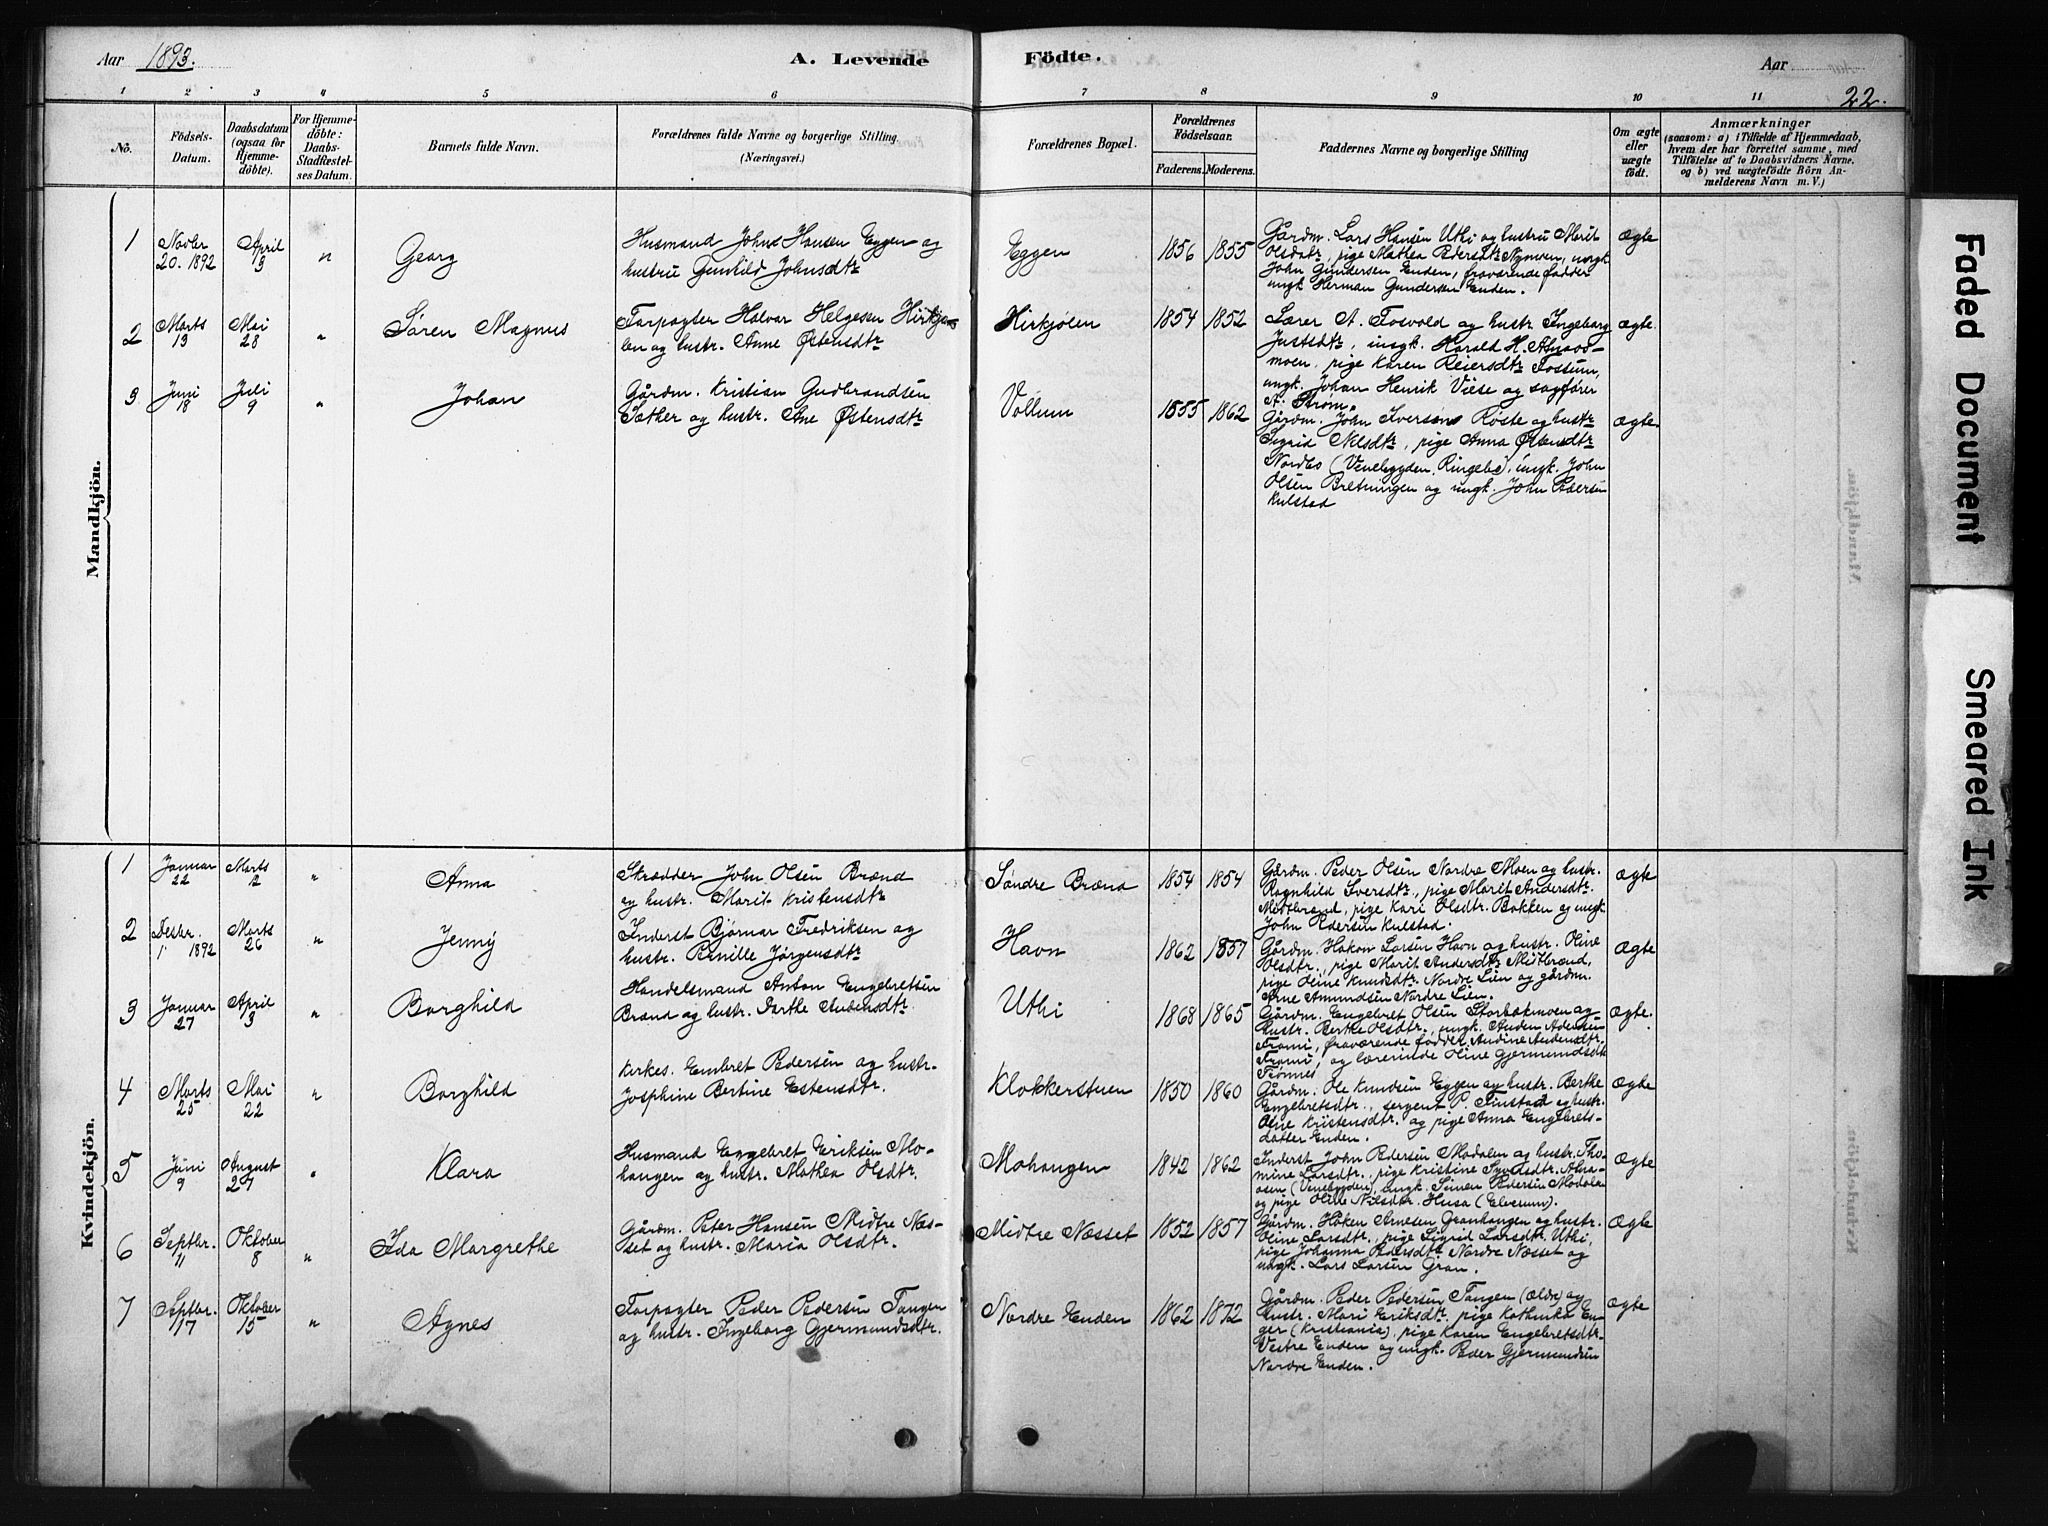 Aar 1893.
A. Levende Födte.
Aar
22.
1 2 3 4 5 6 7 8 9 10 11
No.
Födsels-Datum.
Daabsdatum (ogsaa for Hjemme-döbte).
For Hjemme-döbte: Daabs-Stadfæstel-ses Datum.
Barnets fulde Navn.
Forældrenes fulde Navne og borgerlige Stilling.
(Næringsvei.)
Forældrenes Bopæl.
Forældrenes Födselsaar.
Faderens. Moderens.
Faddernes Navne og borgerlige Stilling
Om ægte eller uægte födt.
Anmærkninger
(saasom: a) i Tilfælde af Hjemmedaab,
hvem der har forrettet samme, med
Tilföielse af to Daabsvidners Navne.
og b) ved uægtefödte Börn An-
melderens Navn m. V.)
Mandkjön.
1 Novbr 20. 1892 April 3 " Georg
Husmand Johns Hansen Eggen og
hustru Gunhild Johnsdtr
Eggen 1856 1855
Gårdm. Lars Hansen Uthi og hustru Marit
Olsdatr, pige Mathea Pedersdtr Nymoen, ungk.
John Gundersen Enden, fraværende fadder
ungk Herman Gundersen Enden.
Ægte
2 Marts 13 Mai 28 " Søren Magnus
Forpagter Halvar Helgesen Hirkjø-
len og hustr. Anne Østensdtr
Hirkjølen 1854 1852
Lærer A. Fosvold og hustr Ingeborg
Justsdtr, ungk. Harald H. Atnaos-
moen, pige Karen Reiersdtr Fossum,
ungk. Johan Henrik Viese og sagfører
A. Strøm.
Ægte.
3 Juni 18 Juli 9 " Johan
Gårdm. Kristian Gudbrandsen
Sæther og hustr. Ane Østensdtr
Vollum 1855 1862
Gårdm. John Iversens Røste og hustr
Sigrid Nilsdtr, pige Anna Østensdtr
Nordbs (Venebygden, Ringebe), ungk. John
Olsen Bretningen og ungk. John Pedersen
Kulstad
Ægte.
Kvindekjön.
1 Januar 22 Marts 12 " Anna
Skrædder John Olsen Brænd
og hustr. Marit Kristensdtr
Søndre Brænd 1854 1854
Gårdm. Peder Olsen Nordre Moen og hustr.
Ragnhild Iversdtr, pige Marit Andersdtr.
Midtbrænd, pige Kari Olsdtr. Bakken og ungk.
John Pedersen Kulstad.
Ægte
2 Desbr. 1 1892 Marts 26 " Jenny
Inderst Bjørnar Fredriksen og
hustr. Pernille Jørgensdtr
Havn 1862 1857
Gårdm. Håkon Larsen Havn og hustr. Oline
Olsdtr., pige Marit Andersdtr Midtbrænd,
pige Oline Knudsdtr. Nordre Lien og gårdm.
Arne Amundsen Nordre Lien.
Ægte
3 Januar 27 April 3 " Borghild
Handelsmand Anton Engebretsen
Brænd og hustr. Dorthe Audensdtr.
Uthi 1868 1865
Gårdm. Engebret Olsen Storbækmoen og
hustr. Berthe Olsdtr., ungk. Auden Adensen
Frami, fraværende fadder, Andine Audensdtr.
Frami, og lærerinde Oline Gjermundsdtr
Trønnes
Ægte.
4 Marts 25 Mai 22 " Borghild
Kirkes. Embret Pedersen og hustr.
Josphine Bertine Estensdtr.
Klokkerstuen 1850 1860
Gårdm. Ole Knudsen Eggen og hustr. Berthe
Engebretsdtr., sergent P. Finstad og hustr.
Oline Kristensdtr. og pige Anna Engebrets-
datter Enden.
Ægte
5 Juni 9 August 27 " Klara
Husmand Engebret Eriksen Mo-
hangen og hustr. Mathea Olsdtr.
Mohangen 1842 1862
Inderst John Pedersen Modalen og hustr. Tho-
mine Larsdtr., pige Kristine Syversdtr. Atna-
osen (Venebygden), ungk. Simen Pedersen Modalen
og pige Oline Nilsdtr. Husa (Elverum).
Ægte
6 Septbr. 11 Oktober 8 " Ida Margrethe
Gårdm. Peter Hansen Midtre Næs-
set og hustr. Maria Olsdtr.
Midtre Næsset 1852 1857
Gårdm. Håken Arnesen Granhaugen og hustr.
Oline Larsdtr., pige Sigrid Larsdtr. Uthi,
pige Johanna Pedersdtr Nordre Næsset og
ungk. Lars Larsen Gran.
Ægte
7 Septbr. 17 Oktober 15 " Agnes
Forpagter Peder Pedersen Tangen
og hustr. Ingeborg Gjermundsdtr.
Nordre Enden 1862 1872
Gårdm. Peder Pedersen Tangen (ældre) og
hustr. Mari Eriksdtr. pige Kathinka En-
ger (Kristiania), pige Karen Engebretsdtr.
Vestre Enden og ungk. Peder Gjermundsen
Nordre Enden.
Ægte
Faded Document
Smeared Ink